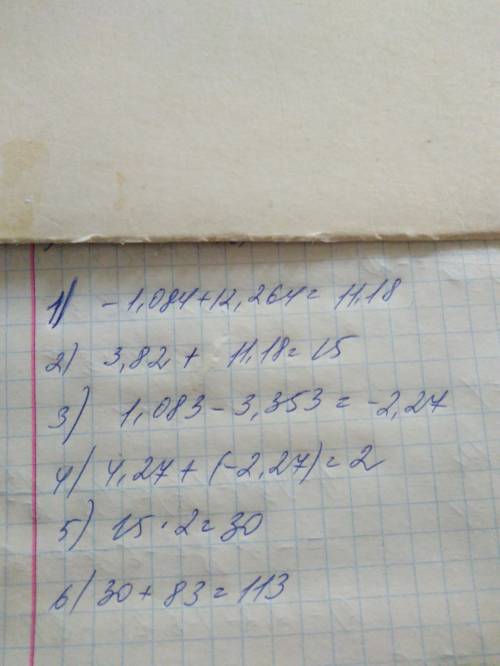 1) -1,084+12,264= 11,18
2) 3,82 + 11,18=15
3) 1,083-3,353=-2,27
4) 4,27+(-2,27)=2
5) 15·2=30
6) 30+83=113